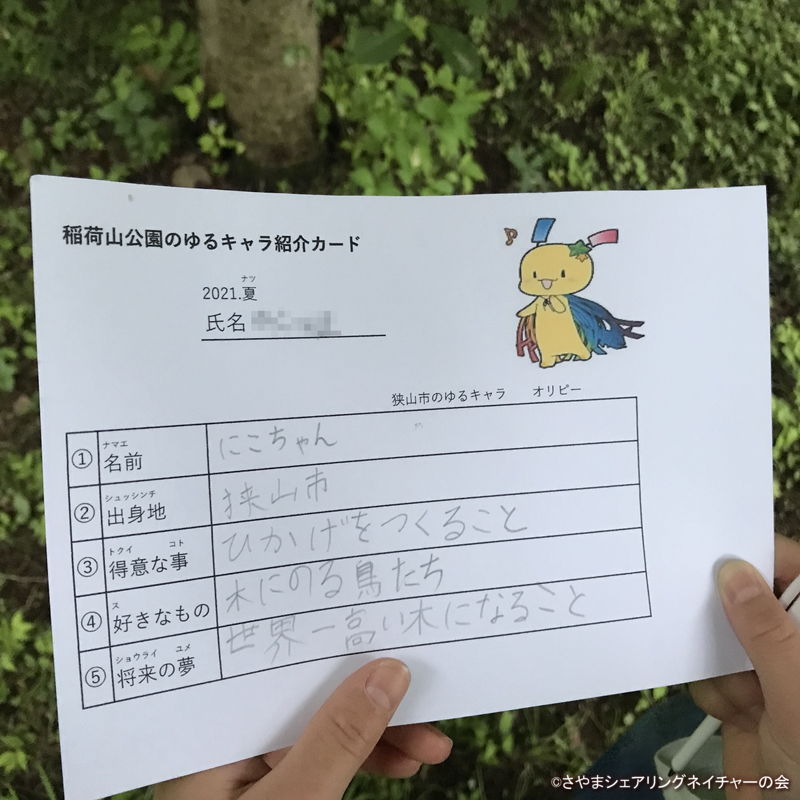 稲荷山公園のゆるキャラ紹介カード
ナツ
2021.夏
氏名
狭山市のゆるキャラ オリピー
ナマエ
① 名前 にこちゃん
シュッシンチ
② 出身地 狭山市
トクイ コト
③ 得意な事 ひかげをつくること
ス
④ 好きなもの 木にのる鳥たち
ショウライ ユメ
⑤ 将来の夢 世界一高い木になること
©さやまシェアリングネイチャーの会